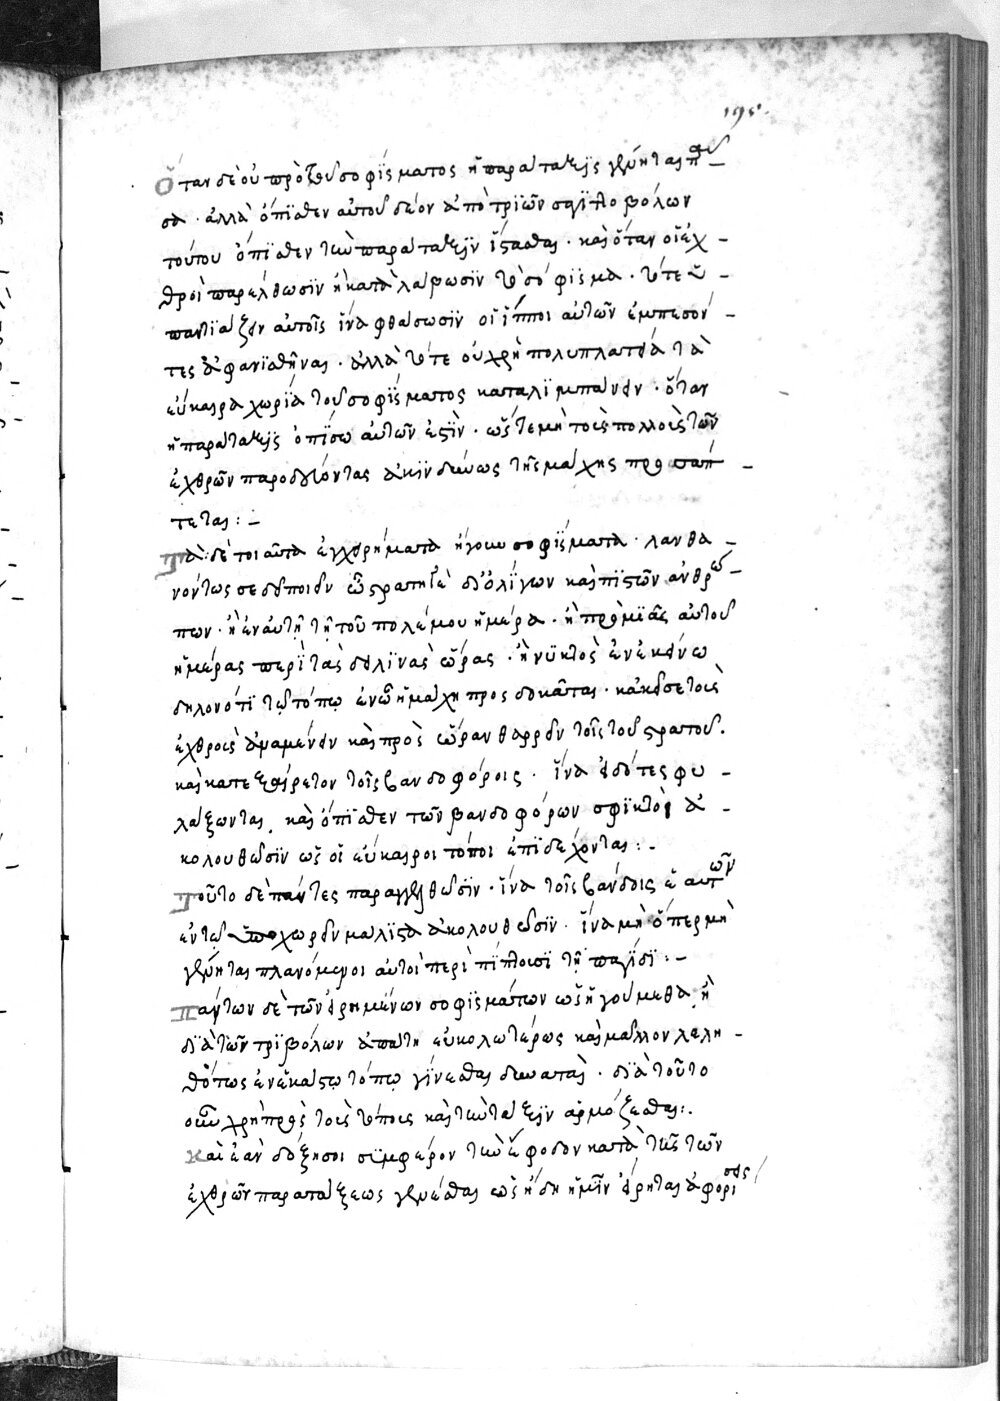 195.
Ὅταν δὲ οὐ πρόσθεν σοφίσματος ἡ παράταξις γένηται πᾶ
σα. ἀλλὰ ὄπισθεν αὐτοῦ δέον ἀπὸ τριῶν σαγιττοβόλων
τούτου ὄπισθεν τὴν παράταξιν ἵστασθαι. καὶ ὅταν οἱ ἐχ-
θροὶ παρέλθωσιν ἢ καταλάβωσιν τὸ σόφισμα. τότε ὑ-
παντιάζειν αὐτοῖς ἵνα φθάσωσιν οἱ ἵπποι αὐτῶν ἐμπεσόν-
τες ἀφανισθῆναι. ἀλλὰ τότε οὐ χρὴ πολυπλατεία τὰ
εὔκαιρα χωρία τοῦ σοφίσματος καταλιμπάνειν. ὅταν
ἡ παράταξις ὀπίσω αὐτῶν ἐστίν. ὥστε μὴ τοὺς πολλοὺς τῶν
ἐχθρῶν παροδεύοντας ἀκινδύνως τῆς μάχης προ
τεται:-
Τὰ δὲ τοιαῦτα ἐγχειρήματα ἤγουν σοφίσματα. λανθα-
νόντως σε δεῖ ποιεῖν ὦ στρατηγὲ δι' ὀλίγων καὶ πιστῶν ἀνθρώ-
πων. ἢ ἐν αὐτῇ τῇ τοῦ πολέμου ἡμέρα. ἢ πρὸ μιᾶς αὐτοῦ
ἡμέρας περὶ τὰς δειλινὰς ὥρας. ἢ νυκτὸς ἐν ἐκείνω
δηλονότι τῷ τόπῳ ἐν ᾧ ἡ μάχη προσδοκᾶται. κἀκεῖσε τοὺς
ἐχθροὺς ἀναμένειν καὶ πρὸς ὥραν θαρρεῖν τοῖς τοῦ στρατοῦ.
καὶ κατεξαίρετον τοῖς βανδοφόροις. ἵνα εἰδότες φυ-
λάξωνται, καὶ ὄπισθεν τῶν βανδοφόρων σφικτοὶ ἀ-
κολουθῶσιν ὡς οἱ εὔκαιροι τόποι ἐπιδέχονται:-
Τοῦτο δὲ πάντες παραγγελθῶσιν. ἵνα τοῖς βάνδοις ἑαυτῶν
ἐν τῷ ὑποχωρεῖν μάλιστα ἀκολουθῶσιν. ἵνα μὴ ὅπερ μὴ
γένηται πλανόμενοι αὐτοὶ περιπίπτουσι τῇ παγίδι:-
Πάντων δὲ τῶν εἰρημένων σοφισμάτων ὡς ἡγούμεθα, ἡ
διὰ τῶν τριβόλων ἀπάτη εὐκολωτέρως καὶ μᾶλλον λελη-
θότως ἐν ἑκάστῳ τόπῳ γίνεσθαι δύναται. διὰ τοῦτο
οὖν χρὴ πρὸς τοὺς τόπους καὶ τὴν τάξιν ἁρμόζεσθαι:.
Καὶ ἐὰν δόξησοι συμφέρον τὴν ἔφοδον κατὰ τῆς τῶν
ἐχθρῶν παρατάξεως γενέσθαι ὡς ἤδη ἡμῖν εἴρηται ἀφορι